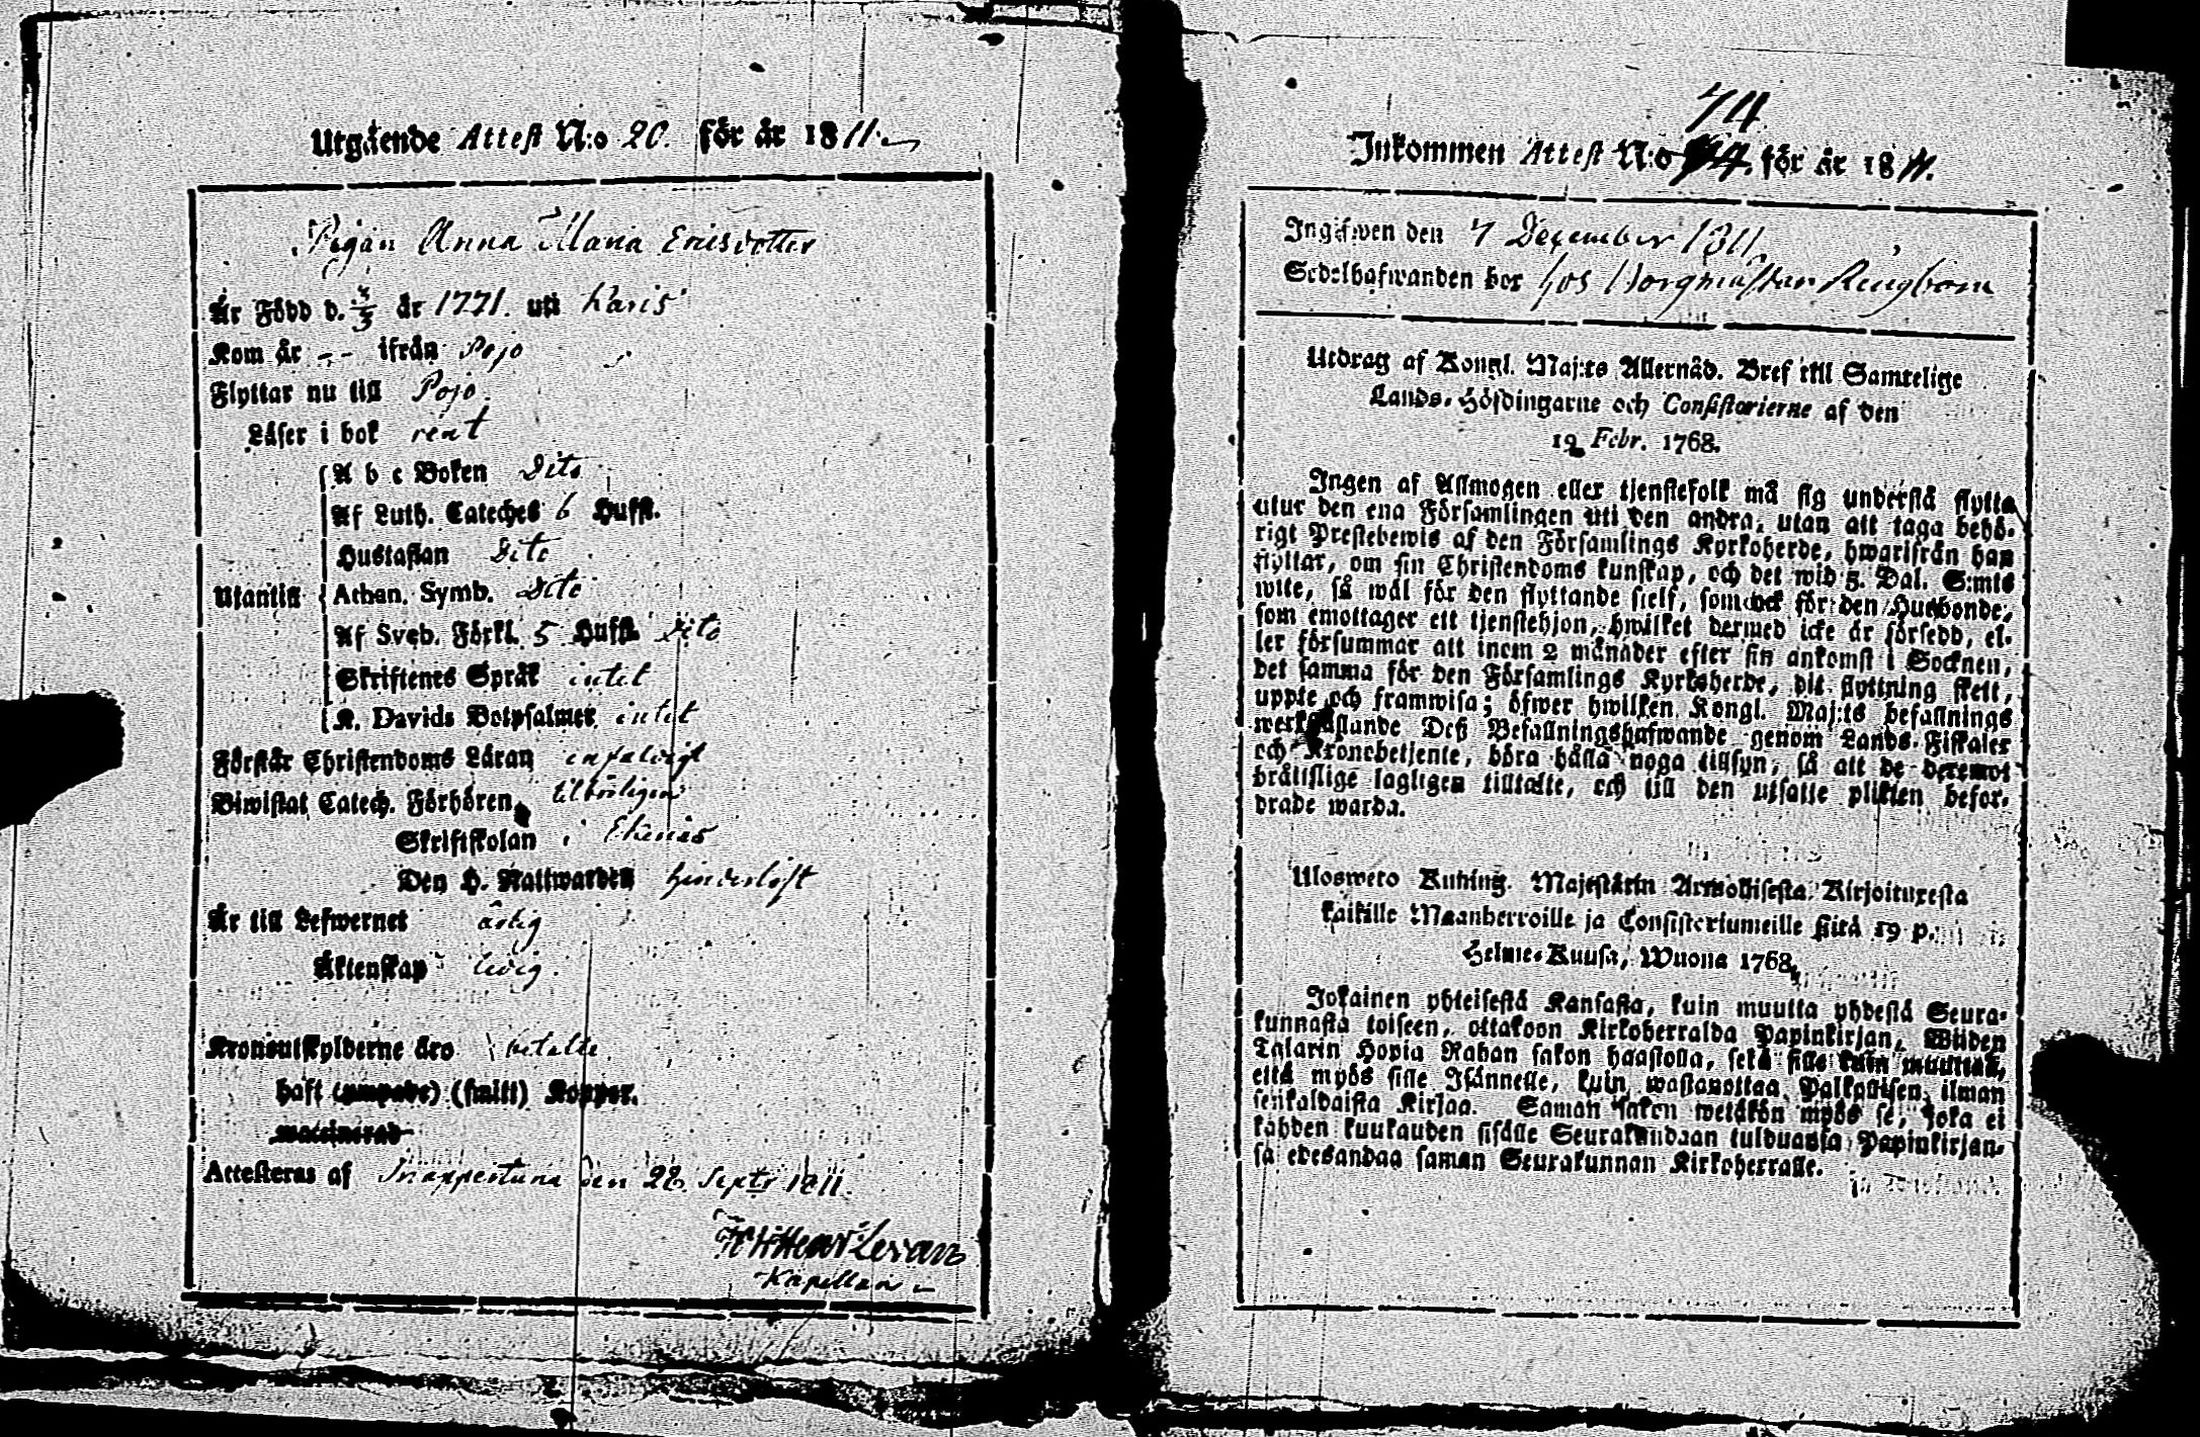 Utgående Attest N:o 20. för år 1811.
Pigan Anna Maria Ericsdotter
Är Född d. 4/3 år 1771. uti Karis
Kom år -- ifrån Pojo
Flyttar nu till Pojo.
Läser i bok rent
A b c Boken Dito
Af Luth. Cateches 6 Hufst.
Hustaflan Dito
Utantill Athan. Symb. Dito
Af Sveb. Förkl. 5 Hufst. Dito
Skriftenes Språk intet
K. Davids Botpsalmer intet
Förstår Christendoms Läran enfaldigt
Biwistat Catech. Förhören
Skriftskolan i Ekenäs
Den H. Nattwarden hinderlöst
Är till Lefwernet ärlig
Äktenskap ledig.
Kronoutskylderne äro betalte
haft (smittk) Koppor.
Attesteras af Snappertuna den 28. Septr 1811.
Kapellan
74
Inkommen Attest N:o för år 1811.
Ingifwen den 7 December 1811
Sedelhafwanden bor hos Borgmästar Ringbom
Utdrag af Kongl. Maj:ts Allernåd. Bref till Samtelige
Lands-Höfdingarne och Consistorierne af den
19 Febr. 1768.
Ingen af Allmogen eller tjenstefolk må sig understå flytta
utur den ena Församlingen uti den andra, utan att taga behö-
rigt Prestebewis af den Församlings Kyrkoherde, hwarifrån han
flyttar, om sin Christendoms kunskap, och det wid 5. Dal. S:mts
wite, så wäl för den flyttande sielf, som ock för den Husbonde,
som emottager ett tjenstehjon, hwilket dermed icke är försedd, el-
ler försummar att inom 2 månader efter sin ankomst i Socknen,
det samma för den Församlings Kyrkoherde, dit flyttning skett,
uppte och framwisa; öfwer hwilken Kongl. Maj:ts befallnings
werkställande Deß Befallningshafwande genom Lands-Fiskaler
och Kronobetjente, böra hålla noga tillsyn, så att de deremot
bråttslige lagligen tilltalte, och till den utsatte plikten befor-
drade warda.
Ulosweto Kuning. Majestätin Armollisesta Kirjoituxesta
kaikille Maanherroille ja Consistoriumeille siitä 19 p.
Helme-Kuusa, Wuona 1768.
Jokainen yhteisestä Kansasta, kuin muutta yhdestä Seura-
kunnasta toiseen, ottakoon Kirkoherralda Papinkirjan, Wiiden
Talarin Hopia Rahan sakon haastolla, sekä sille kuin muuttaa,
että myös sille Isännelle, kuin wastanottaa Palkollisen, ilman
senkaldaista Kirjaa. Saman sakon wetäkön myös se, joka ei
kahden kuukauden sisälle Seurakundaan tulduansa Papinkirjan-
sa edesandaa saman Seurakunnan Kirkoherralle.